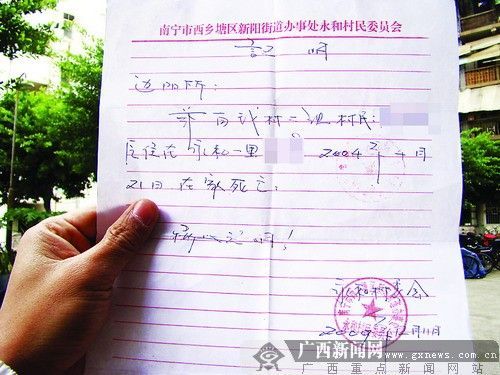 南宁市西乡塘区新阳街道办事处永和村民委员会
证 明
边阳所:
兹有我村二组村民:
居住在永和一里 2004年4月
21日在家死亡,
特此证明!
永和村委会
2009年12月11日
广西新闻网
www.gxnews.com.cn
广西重点新闻网站